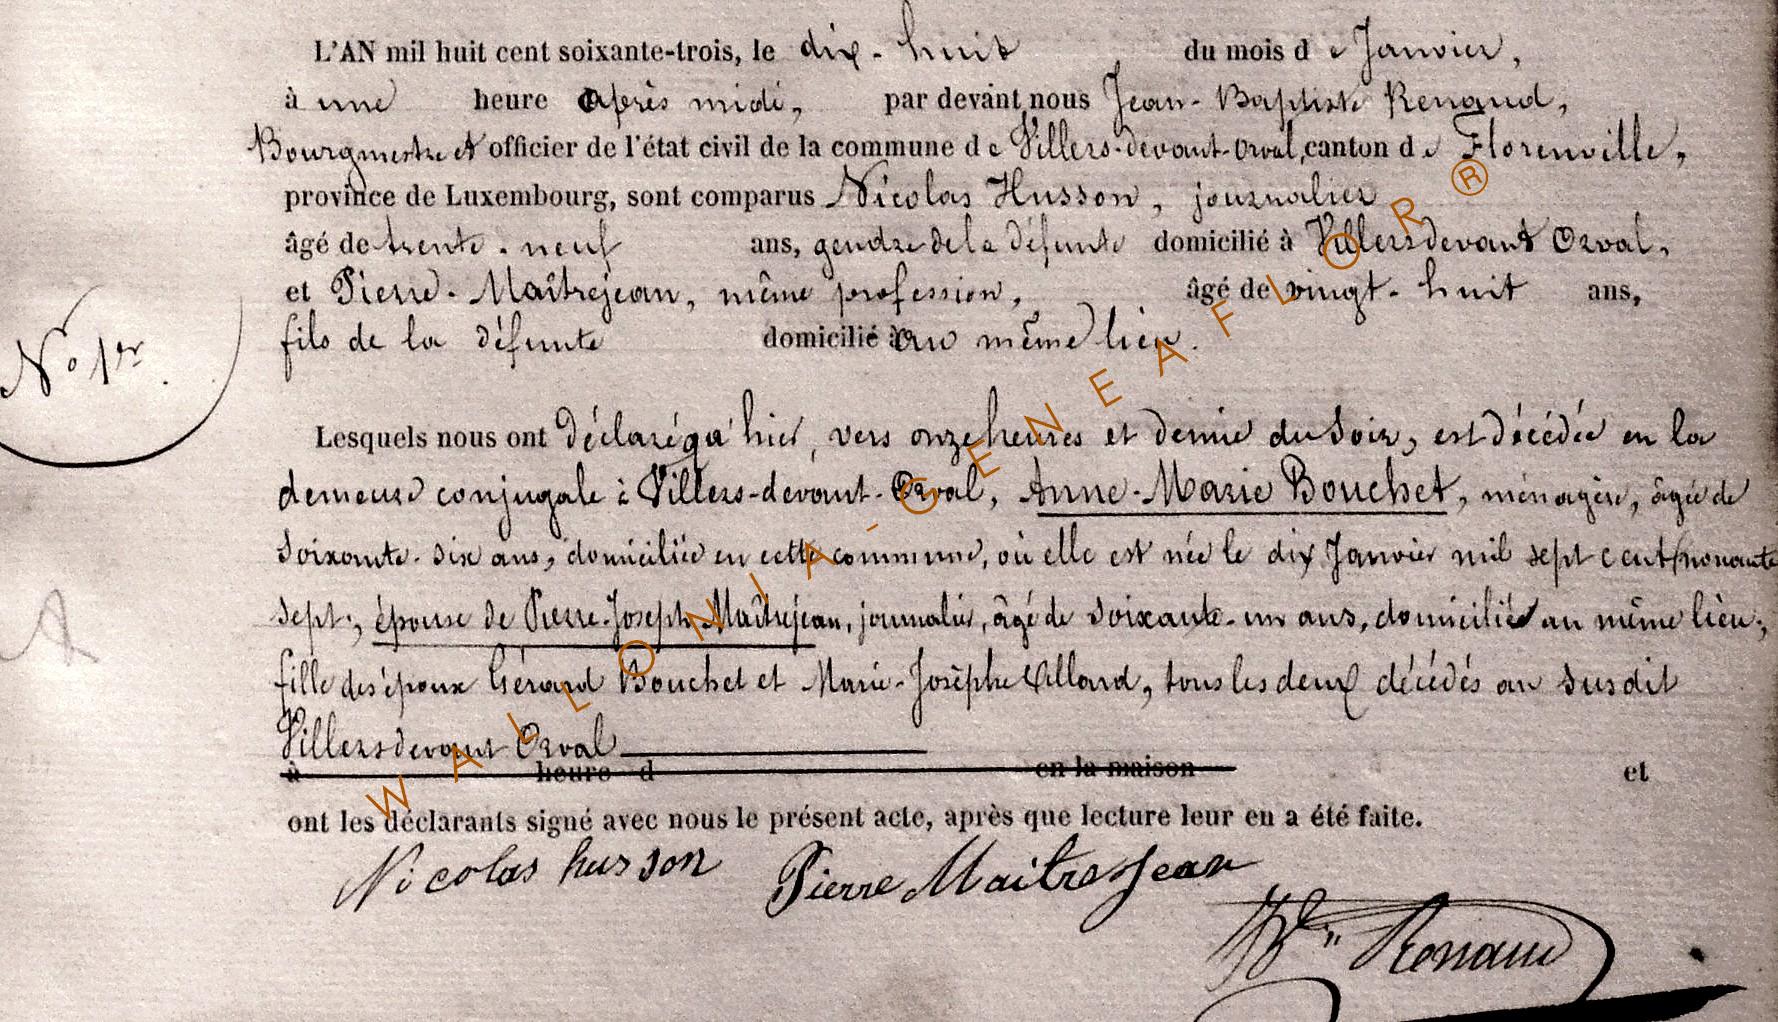 L'AN mil huit cent soixante-trois, le dix-huit du mois de Janvier,
à une heure après midi, par devant nous Jean-Baptiste Renaud,
Bourgmestre et officier de l'état civil de la commune de Villers-devant-Orval, canton de Florenville,
province de Luxembourg, sont comparus Nicolas Husson, journalier
âgé de trente-neuf ans, gendre de la défunte domicilié à Villers devant Orval,
et Pierre Maîtrejean, même profession, âgé de vingt-huit ans,
N° 1er
fils de la défunte domicilié à au même lieu.
Lesquels nous ont déclaré qu'hier, vers onze heures et demie du soir, est décédée en la
demeure conjugale à Villers-devant-Orval, Anne-Marie Bouchet, ménagère, âgée de
soixante-six ans, domiciliée en cette commune, où elle est née le dix Janvier mil sept cent nonante
sept; épouse de Pierre-Joseph Maîtrejean, journalier, âgé de soixante-un ans, domicilié au même lieu;
fille des époux Gérard Bouchet et Marie-Josèphe Allard, tous les deux décédés au susdit
Villers devant Orval
à heure d en la maison et
ont les déclarants signé avec nous le présent acte, après que lecture leur en a été faite.
Nicolas husson Pierre Maitrejean
Renaud
WALLONIA-GENEAFLOR®